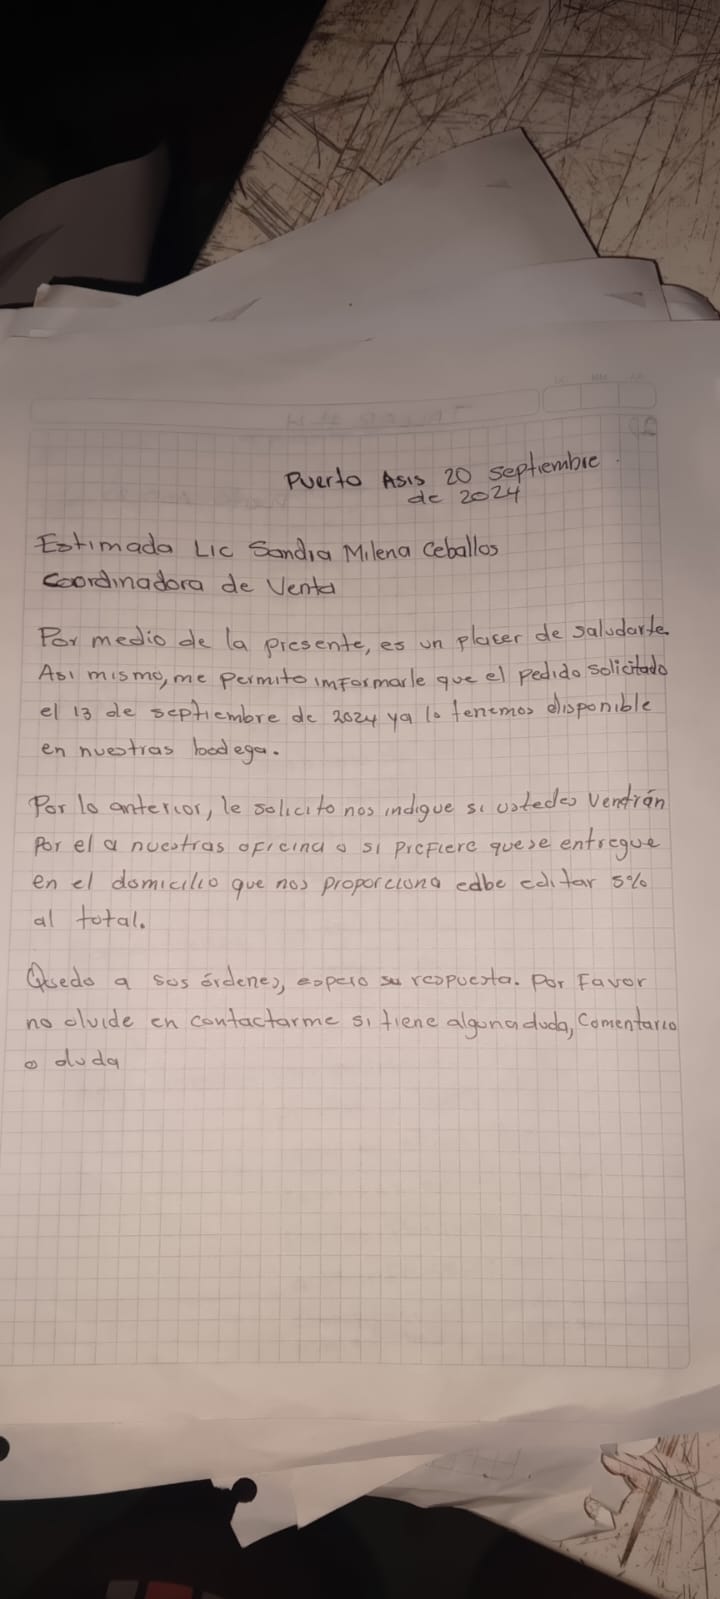 Puerto Asis 20 septiembre
de 2024
Estimada Lic Sandra Milena Ceballos
Coordinadora de Venta
Por medio de la presente, es un placer de saludarte.
Asi mismo, me permito imformarle que el pedido solicitado
el 13 de septiembre de 2024 ya lo tenemos disponible
en nuestras bodega.
Por lo anterior, le solicito nos indique si ustedes vendrán
por el a nuestras oficina o si prefiere que se entregue
en el domicilio que nos proporciona edbe editar 5%
al total.
Quedo a sus órdenes, espero su respuesta. Por Favor
no olvide en contactarme si tiene alguna duda, Comentario
o duda